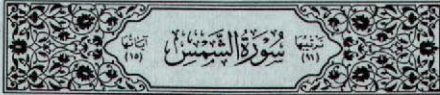 ترتيبها (٩١) سُورَةُ الشَّمْسِ آياتها (١٥)